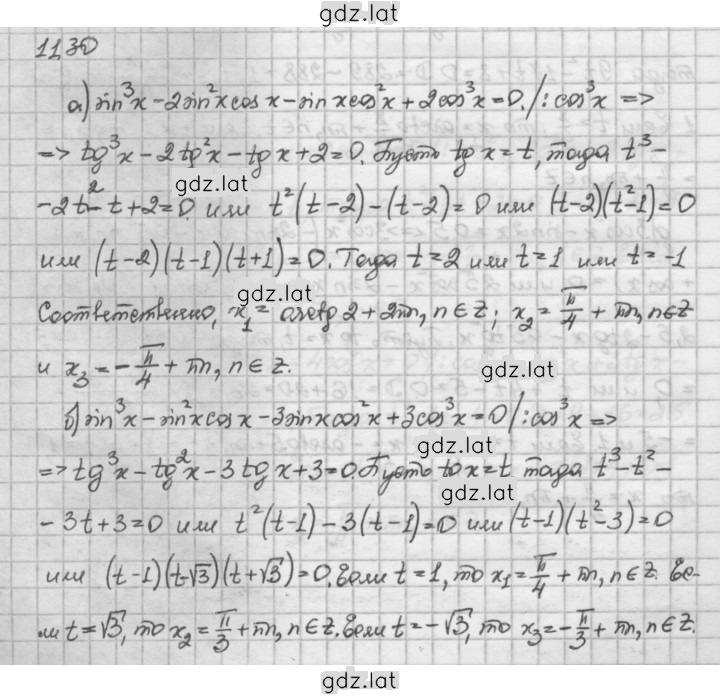 gdz.lat
1130
а) sin³x - 2sin²x cos x - sin x cos²x + 2cos³x = 0. /: cos³x =>
=> tg³x - 2tg²x - tg x + 2 = 0. Пусть tg x = t, тогда t³ -
gdz.lat
- 2t² - t + 2 = 0 или t²(t - 2) - (t - 2) = 0 или (t - 2)(t² - 1) = 0
или (t - 2)(t - 1)(t + 1) = 0. Тогда t = 2 или t = 1 или t = -1
gdz.lat
Соответственно, x₁ = arctg 2 + 2πn, n ∈ Z; x₂ = π/4 + πn, n ∈ Z
и x₃ = -π/4 + πn, n ∈ Z.
gdz.lat
б) sin³x - sin²x cos x - 3sin x cos²x + 3cos³x = 0 /: cos³x =>
gdz.lat
=> tg³x - tg²x - 3 tg x + 3 = 0. Пусть tg x = t тогда t³ - t² -
gdz.lat
- 3t + 3 = 0 или t²(t - 1) - 3(t - 1) = 0 или (t - 1)(t² - 3) = 0
или (t - 1)(t - √3)(t + √3) = 0. Если t = 1, то x₁ = π/4 + πn, n ∈ Z. Ес-
ли t = √3, то x₂ = π/3 + πn, n ∈ Z. Если t = -√3, то x₃ = -π/3 + πn, n ∈ Z.
gdz.lat